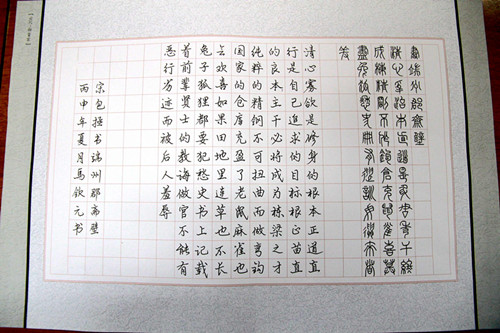 書端州郡齋壁
清心為治本直道是身謀秀干終
成棟精鋼不作鉤倉充鼠雀喜草
盡兔狐愁史冊有遺訓毋貽來者
羞
清心寡欲是修身的根本正道直
行是自己追求的目标根正苗直
的良木主干必将成为栋梁之才
纯粹的精钢不可扭曲而做弯钩
国家的仓库充盈了老鼠麻雀也
会欢喜如果田地里草也不长
兔子狐狸都要犯愁史书上记载
着前辈贤士的教诲做官不能有
恶行劣迹而被后人羞辱
宋包拯书端州郡斋壁
丙申年夏月马钦元书